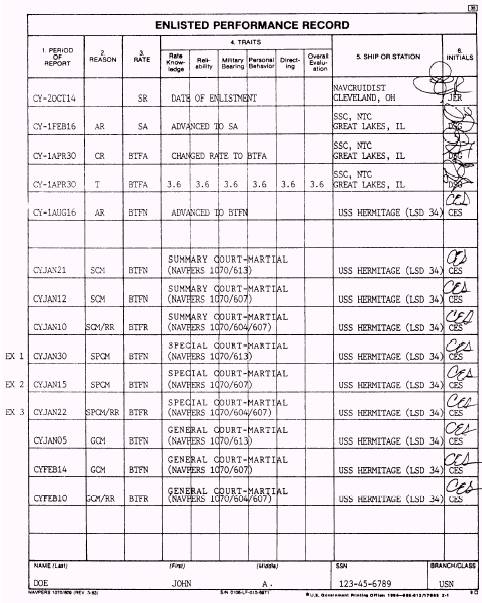 ENLISTED PERFORMANCE RECORD
1. PERIOD OF REPORT 2. REASON 3. RATE 4. TRAITS 5. SHIP OR STATION 6. INITIALS
Rate Know-ledge Reli-ability Military Bearing Personal Behavior Direct-ing Overall Evalu-ation
NAVCRUIDIST
CY=20OCT14 SR DATE OF ENLISTMENT CLEVELAND, OH JER
SSC, NTC
CY-1FEB16 AR SA ADVANCED TO SA GREAT LAKES, IL DSG
SSC, NTC
CY-1APR30 CR BTFA CHANGED RATE TO BTFA GREAT LAKES, IL
SSC, NTC
CY-1APR30 T BTFA 3.6 3.6 3.6 3.6 3.6 3.6 GREAT LAKES, IL DSG
CY=1AUG16 AR BTFN ADVANCED TO BTFN USS HERMITAGE (LSD 34) CES
SUMMARY COURT-MARTIAL
CYJAN21 SCM BTFN (NAVPERS 1070/613) USS HERMITAGE (LSD 34) CES
SUMMARY COURT-MARTIAL
CYJAN12 SCM BTFN (NAVPERS 1070/607) USS HERMITAGE (LSD 34) CES
SUMMARY COURT-MARTIAL
CYJAN10 SCM/RR BTFR (NAVPERS 1070/604/607) USS HERMITAGE (LSD 34) CES
SPECIAL COURT-MARTIAL
EX 1 CYJAN30 SPCM BTFN (NAVPERS 1070/613) USS HERMITAGE (LSD 34) CES
SPECIAL COURT-MARTIAL
EX 2 CYJAN15 SPCM BTFN (NAVPERS 1070/607) USS HERMITAGE (LSD 34) CES
SPECIAL COURT-MARTIAL
EX 3 CYJAN22 SPCM/RR BTFR (NAVPERS 1070/604/607) USS HERMITAGE (LSD 34) CES
GENERAL COURT-MARTIAL
CYJAN05 GCM BTFN (NAVPERS 1070/613) USS HERMITAGE (LSD 34) CES
GENERAL COURT-MARTIAL
CYFEB14 GCM BTFN (NAVPERS 1070/607) USS HERMITAGE (LSD 34) CES
GENERAL COURT-MARTIAL
CYFEB10 GCM/RR BTFR (NAVPERS 1070/604/607) USS HERMITAGE (LSD 34) CES
NAME (Last) (First) (Middle) SSN BRANCH/CLASS
DOE JOHN A. 123-45-6789 USN
NAVPERS 1070/609 (REV. S/N 0106-LF-015- U.S. Government Printing Office: